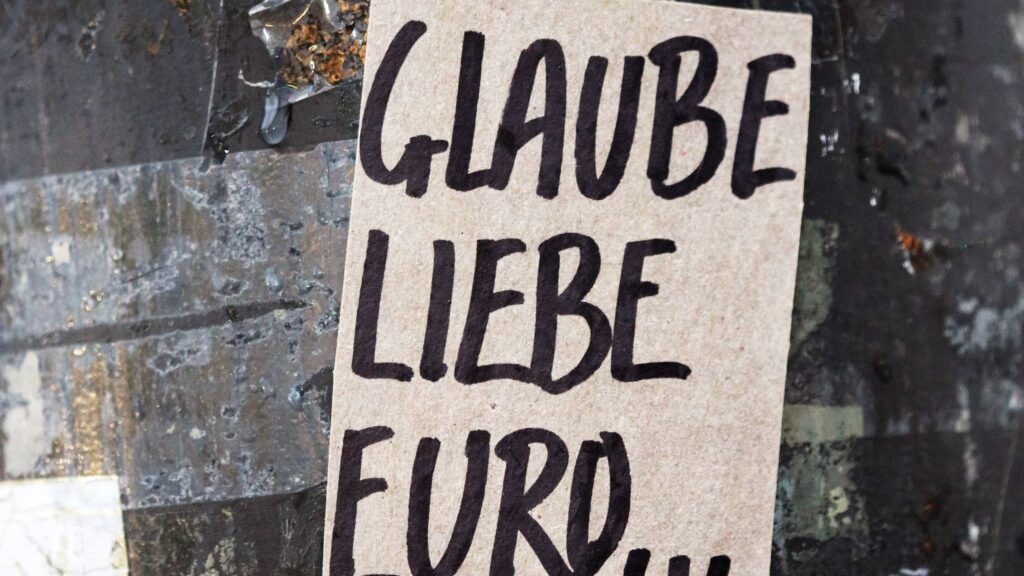 GLAUBE
LIEBE
EURO...